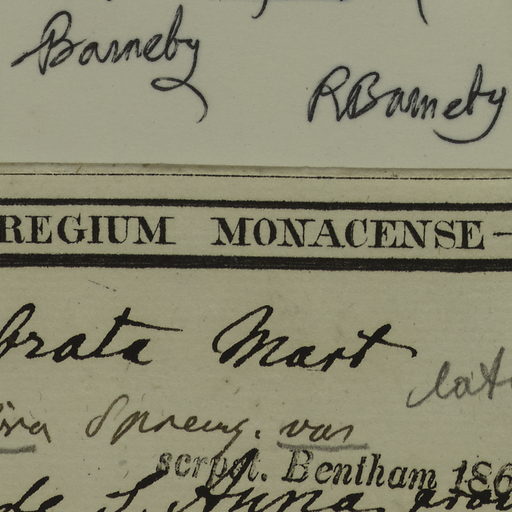 Barneby
RBarneby
REGIUM MONACENSE —
brata Mart
lat
Spreng. var
scrpst. Bentham 186
de S. Anna